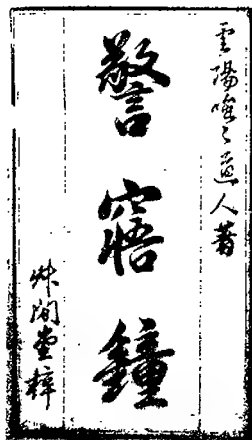 雲陽嗤々道人著
警寤鐘
艸閒堂梓